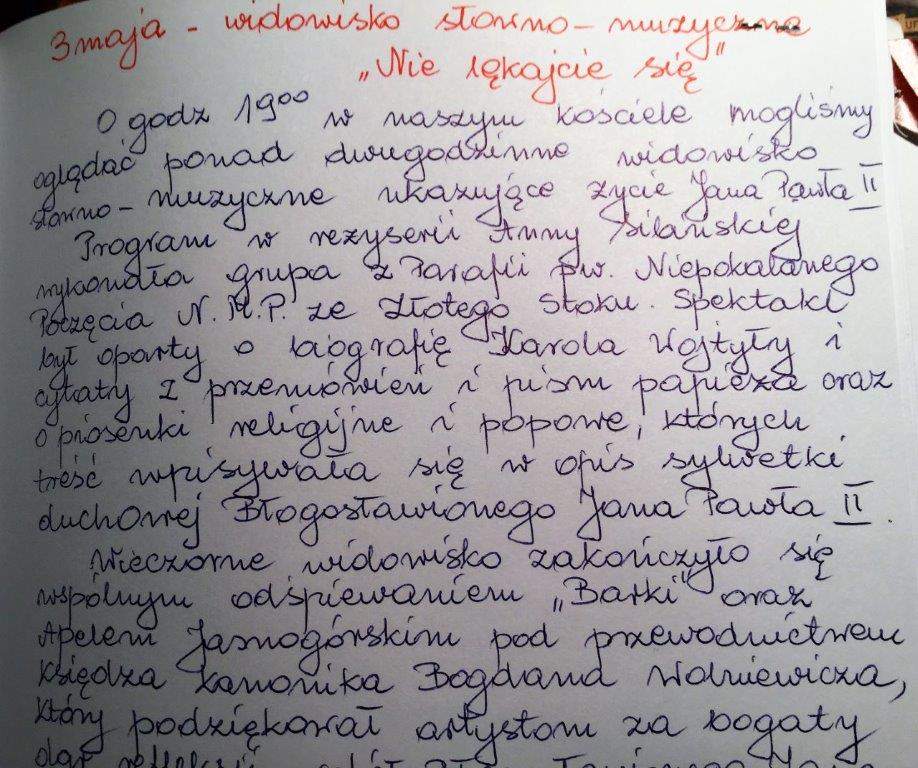 3 maja - widowisko słowno-muzyczne
„Nie lękajcie się"
O godz 19⁰⁰ w naszym kościele mogliśmy
oglądać ponad dwugodzinne widowisko
słowno-muzyczne ukazujące życie Jana Pawła II
Program w reżyserii Anny Silańskiej
wykonała grupa z Parafii pw. Niepokalanego
Poczęcia N.M.P. ze Złotego Stoku. Spektakl
był oparty o biografię Karola Wojtyły i
cytaty z przemówień i pism papieża oraz
o piosenki religijne i popowe, których
treść wpisywała się w opis sylwetki
duchowej Błogosławionego Jana Pawła II.
Wieczorne widowisko zakończyło się
wspólnym odśpiewaniem „Barki" oraz
Apelem Jasnogórskim pod przewodnictwem
księdza kanonika Bogdana Wolniewicza,
który podziękował artystom za bogaty
dar